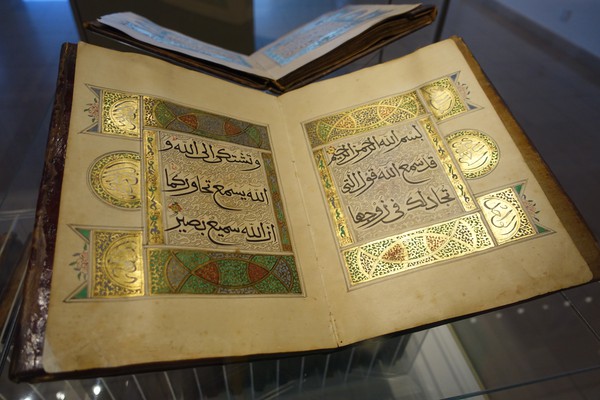 بسم الله الرحمن الرحيم
قد سمع الله قول التى
تجادلك فى زوجها
وتشتكى إلى الله و
الله يسمع تحاوركما
إن الله سميع بصير